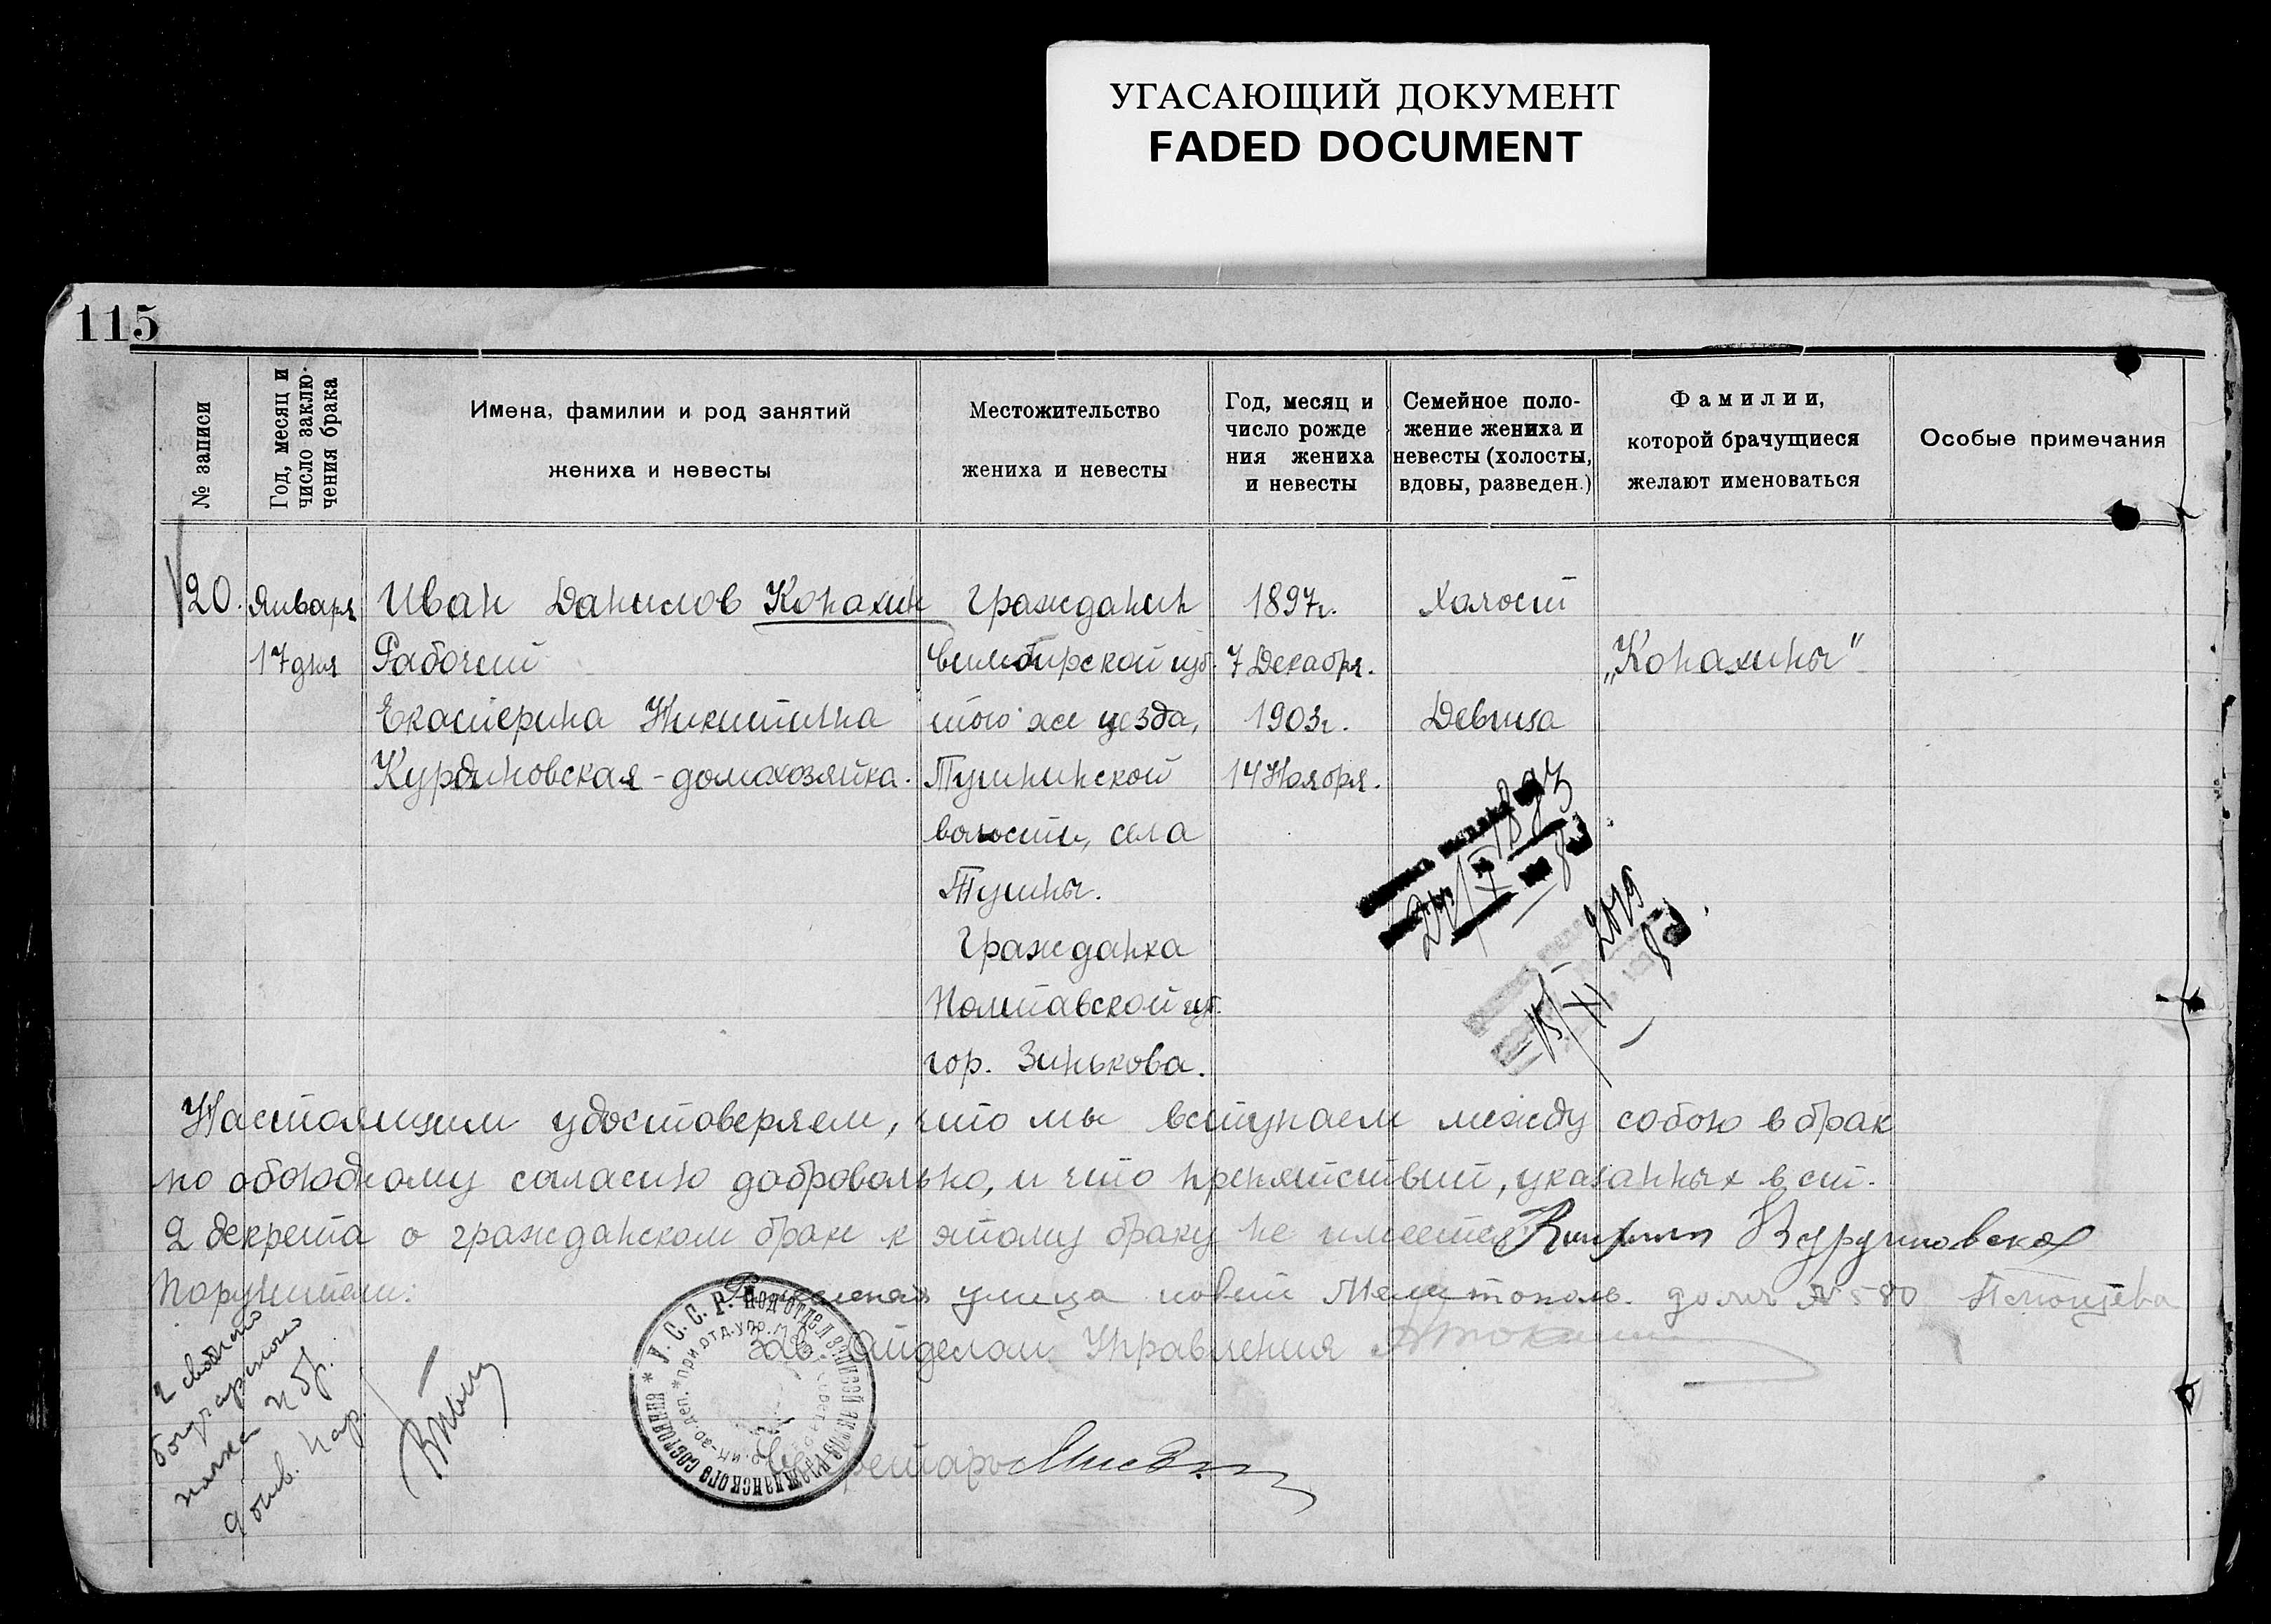 УГАСАЮЩИЙ ДОКУМЕНТ
FADED DOCUMENT
115
№ записи
Год, месяц и
число заклю-
чения брака
Имена, фамилии и род занятий
жениха и невесты
Местожительство
жениха и невесты
Год, месяц и
число рожде
ния жениха
и невесты
Семейное поло-
жение жениха и
невесты (холосты,
вдовы, разведен.)
Фамилии,
которой брачущиеся
желают именоваться
Особые примечания
20.
Января
17 дня
Иван Данилов Конахин
Рабочий
Екатерина Никитична
Курдиновская - домохозяйка.
Гражданин
Симбирской губ.
того же уезда,
Тушнинской
волости, села
Тушны.
Гражданка
Полтавской губ.
гор. Зинькова.
1897г.
7 Декабря.
1903г.
14 Ноября.
Холост
Девица
„Конахины"
Настоящим удостоверяем, что мы вступаем между собою в брак
по обоюдному согласию добровольно, и что препятствий, указанных в ст.
2 декрета о гражданском браке к этому браку не имеется
Поручители:
улица новий Мелитополь. домъ № 580
Зав. Отделом Управления
У.С.С.Р. Подотдел записей актов гражданского состояния
Секретарь